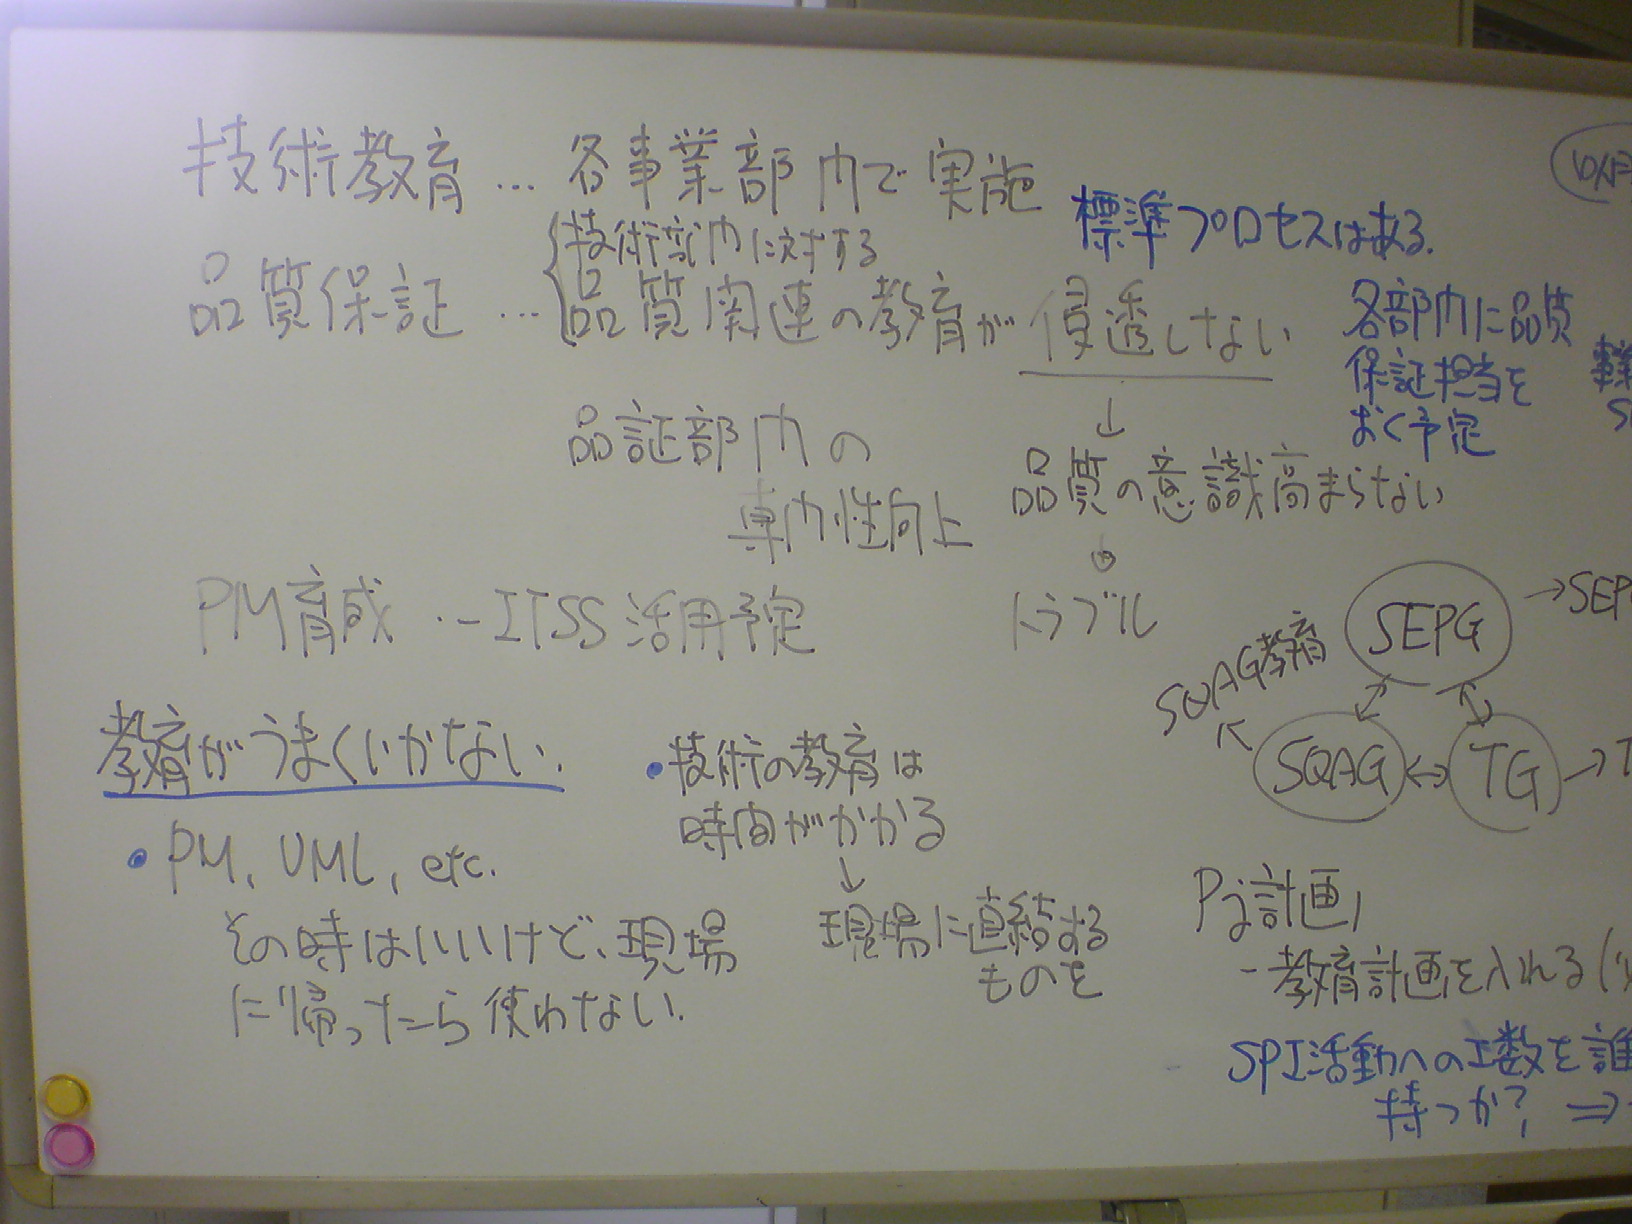 技術教育 … 各事業部内で実施
標準プロセスはある.
品質保証 … 技術部門に対する
品質関連の教育が浸透しない
↓
品質の意識高まらない
↓
トラブル
各部門に品質
保証担当を
おく予定
品証部門の
専門性向上
PM育成 … ITSS活用予定
教育がうまくいかない.
・PM, UML, etc.
その時はいいけど、現場
に帰ったら使わない.
・技術の教育は
時間がかかる
↓
現場に直結する
ものを
SEPG →
SQAG教育
SQAG ↔ TG →
Pj計画
- 教育計画を入れる (
SPI活動への工数を誰
持つか? ⇒